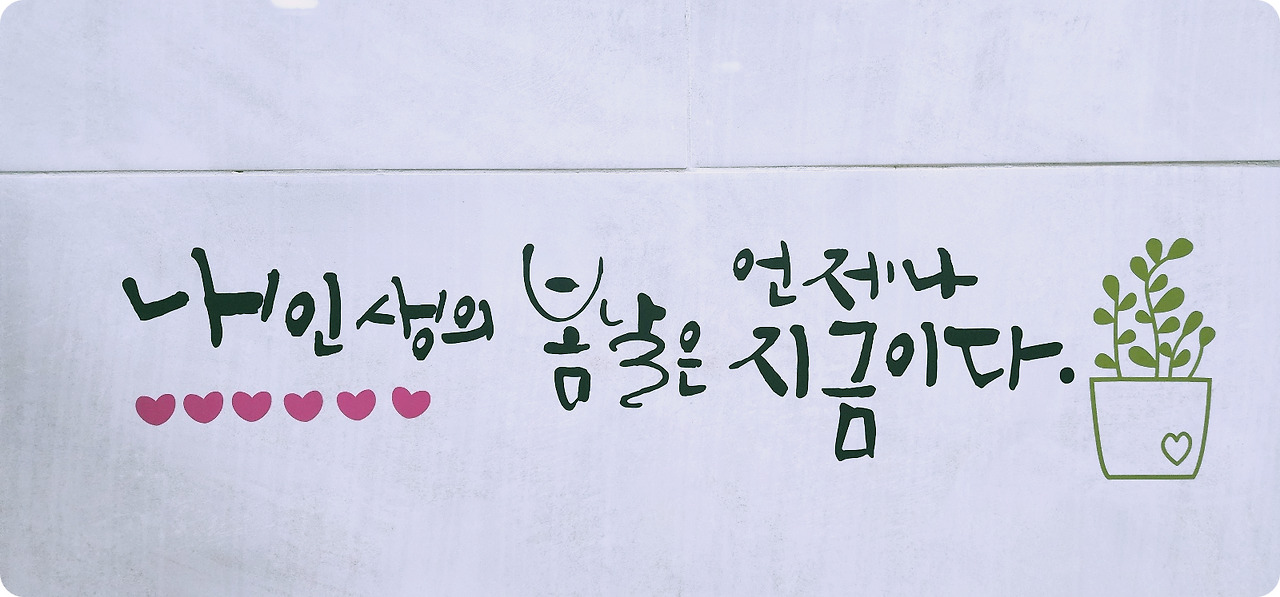 내 인생의 봄날은 언제나
지금이다.